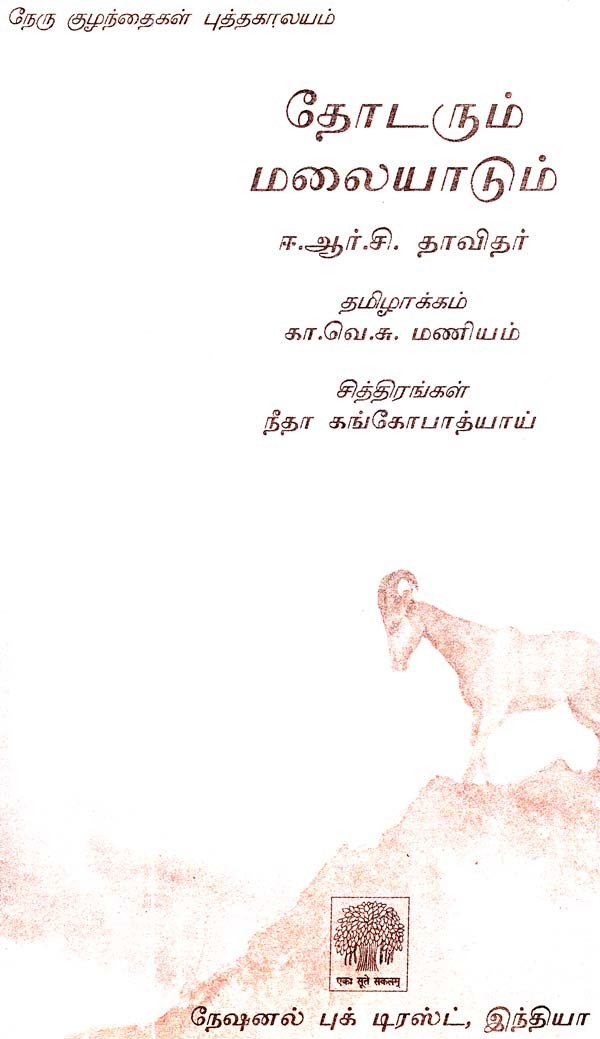 நேரு குழந்தைகள் புத்தகாலயம்
தோடரும்
மலையாடும்
ஈ.ஆர்.சி. தாவிதர்
தமிழாக்கம்
கா.வெ.சு. மணியம்
சித்திரங்கள்
நீதா கங்கோபாத்யாய்
एकः सूते सकलम्
நேஷனல் புக் டிரஸ்ட், இந்தியா